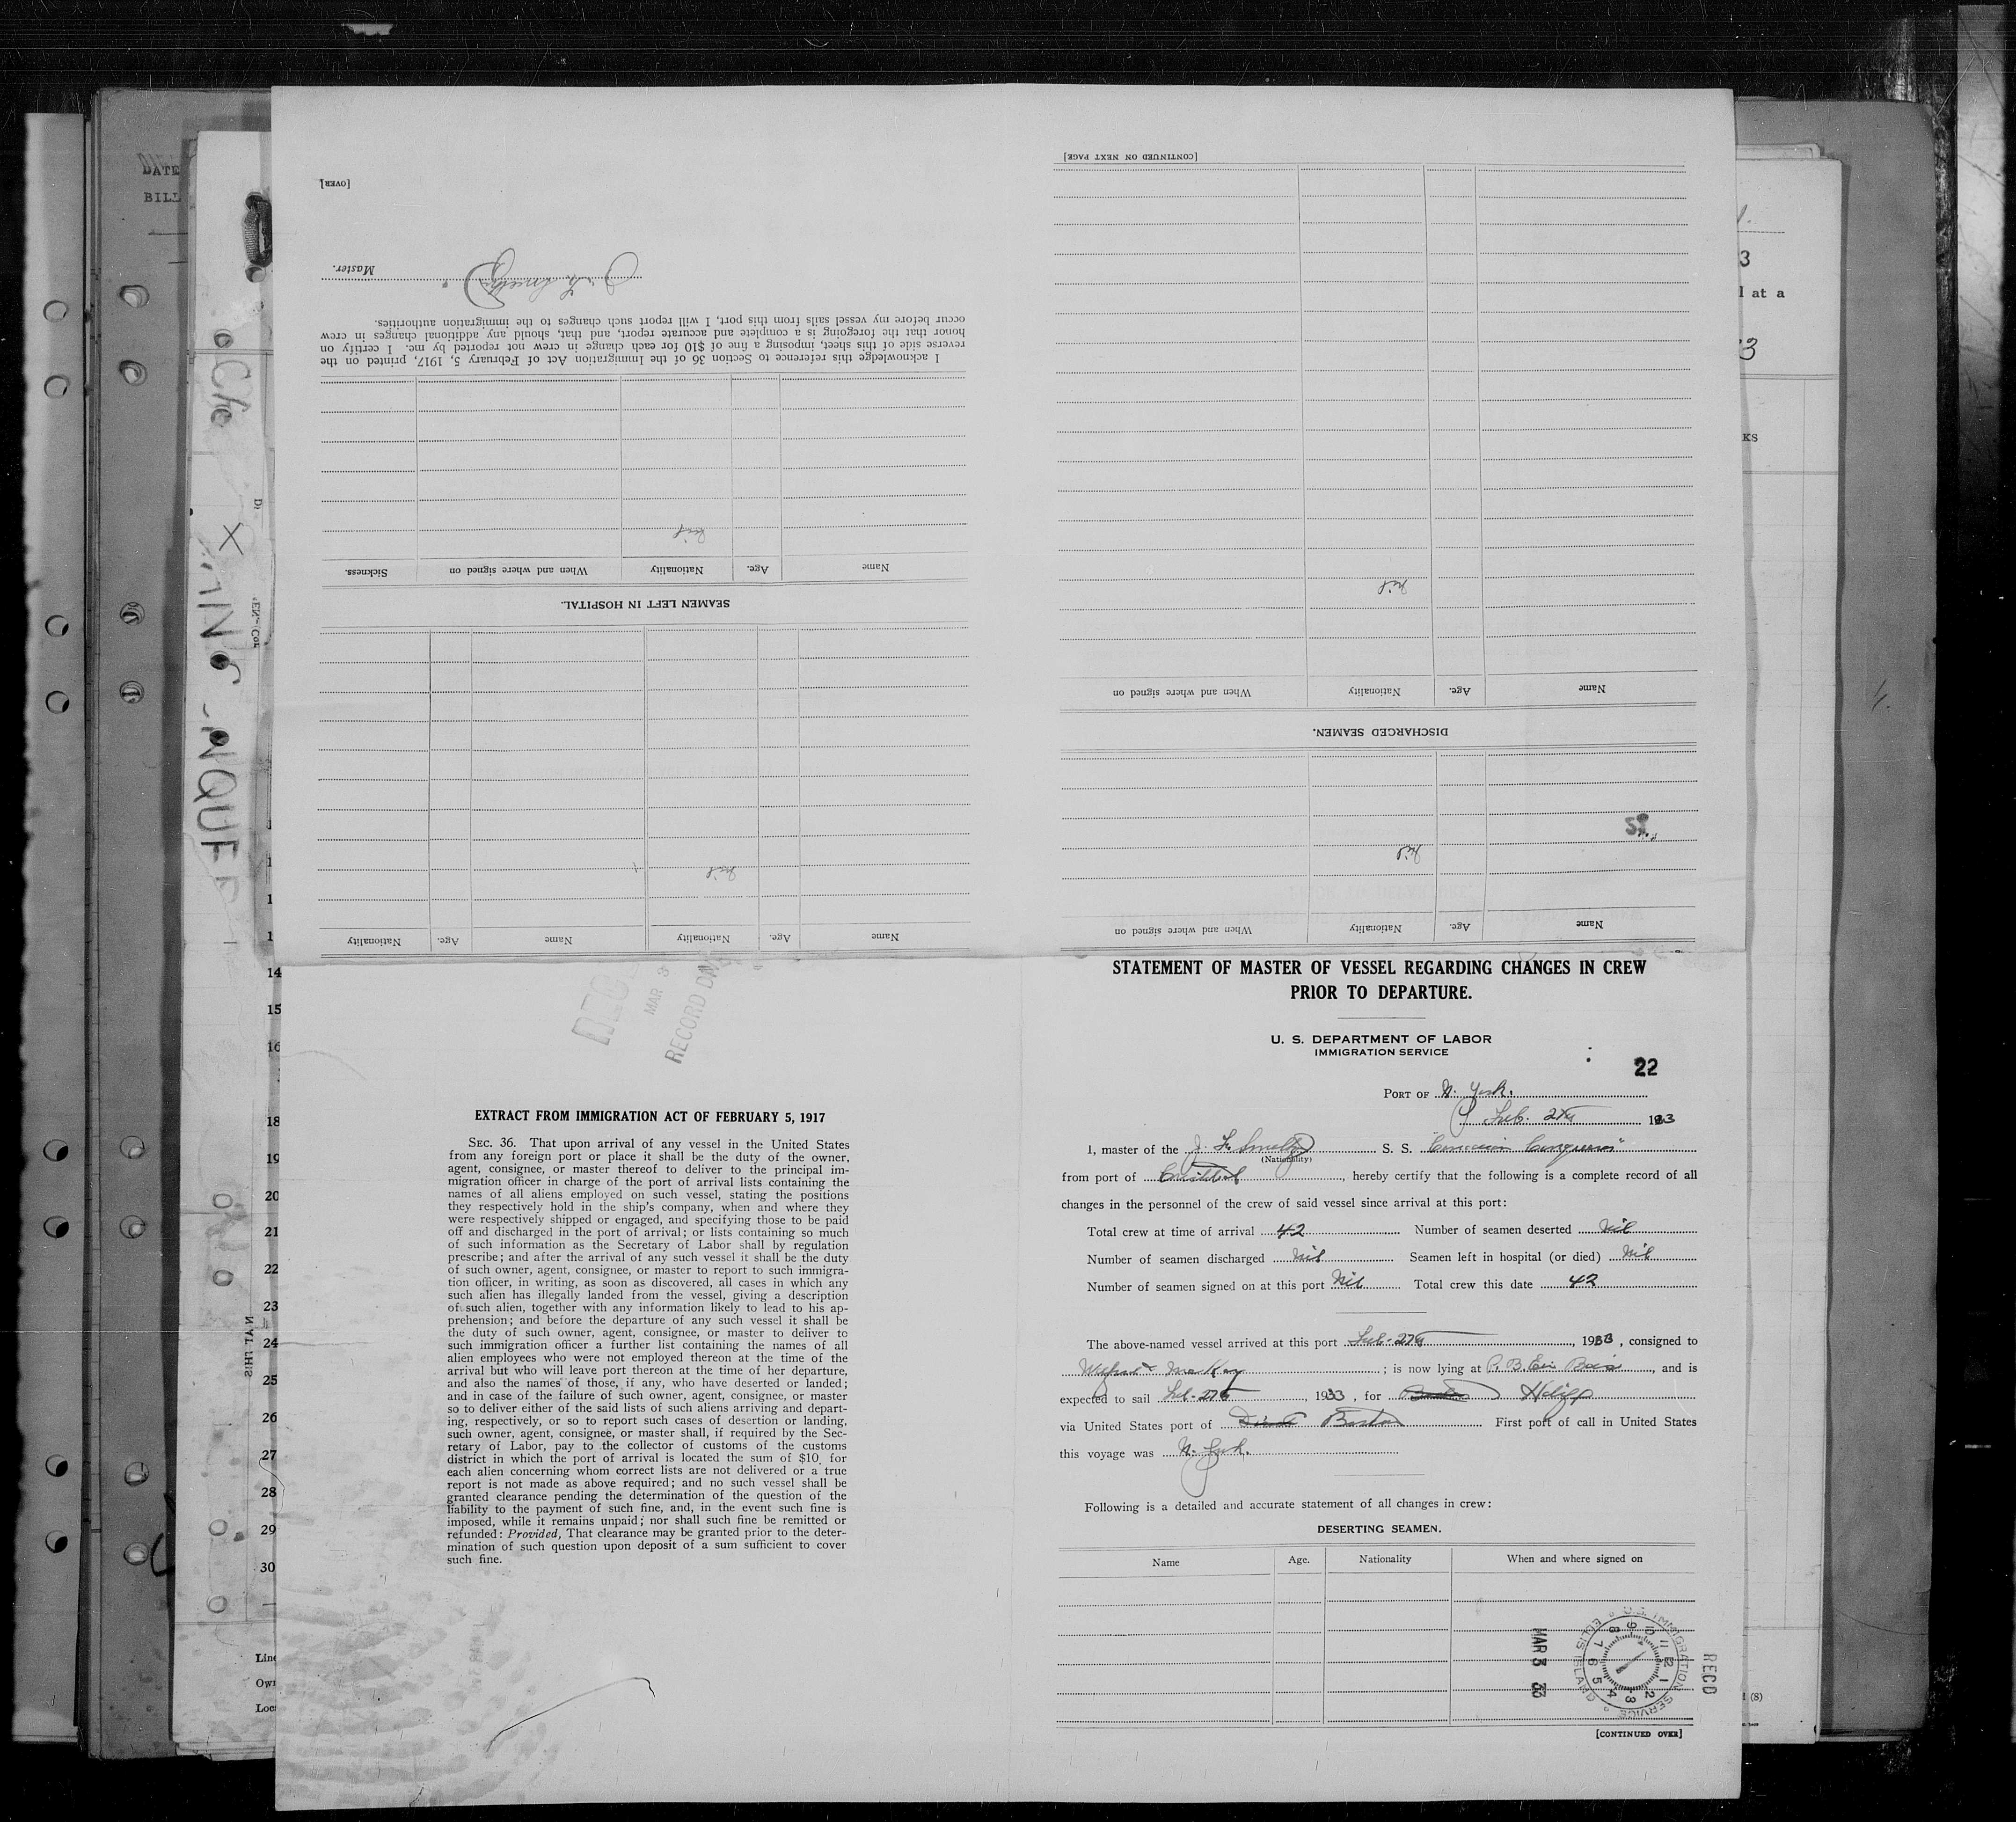 STATEMENT OF MASTER OF VESSEL REGARDING CHANGES IN CREW
PRIOR TO DEPARTURE.
U. S. DEPARTMENT OF LABOR
IMMIGRATION SERVICE
22
PORT OF N. York.
Feb. 27th 1933
I, master of the J. F. S. S.
(Nationality)
from port of , hereby certify that the following is a complete record of all
changes in the personnel of the crew of said vessel since arrival at this port:
Total crew at time of arrival 42 Number of seamen deserted Nil
Number of seamen discharged Nil Seamen left in hospital (or died) Nil
Number of seamen signed on at this port Nil Total crew this date 42
The above-named vessel arrived at this port Feb. 27th, 1933, consigned to
MacKay ; is now lying at P. B. , and is
expected to sail Feb. 27th, 1933, for
via United States port of Boston First port of call in United States
this voyage was N. York.
Following is a detailed and accurate statement of all changes in crew:
DESERTING SEAMEN.
Name Age. Nationality When and where signed on
MAR 3 33
RECD
U. S. IMMIGRATION SERVICE
ELLIS ISLAND
[CONTINUED OVER]
EXTRACT FROM IMMIGRATION ACT OF FEBRUARY 5, 1917
SEC. 36. That upon arrival of any vessel in the United States
from any foreign port or place it shall be the duty of the owner,
agent, consignee, or master thereof to deliver to the principal im-
migration officer in charge of the port of arrival lists containing the
names of all aliens employed on such vessel, stating the positions
they respectively hold in the ship's company, when and where they
were respectively shipped or engaged, and specifying those to be paid
off and discharged in the port of arrival; or lists containing so much
of such information as the Secretary of Labor shall by regulation
prescribe; and after the arrival of any such vessel it shall be the duty
of such owner, agent, consignee, or master to report to such immigra-
tion officer, in writing, as soon as discovered, all cases in which any
such alien has illegally landed from the vessel, giving a description
of such alien, together with any information likely to lead to his ap-
prehension; and before the departure of any such vessel it shall be
the duty of such owner, agent, consignee, or master to deliver to
such immigration officer a further list containing the names of all
alien employees who were not employed thereon at the time of the
arrival but who will leave port thereon at the time of her departure,
and also the names of those, if any, who have deserted or landed;
and in case of the failure of such owner, agent, consignee, or master
so to deliver either of the said lists of such aliens arriving and depart-
ing, respectively, or so to report such cases of desertion or landing,
such owner, agent, consignee, or master shall, if required by the Sec-
retary of Labor, pay to the collector of customs of the customs
district in which the port of arrival is located the sum of $10 for
each alien concerning whom correct lists are not delivered or a true
report is not made as above required; and no such vessel shall be
granted clearance pending the determination of the question of the
liability to the payment of such fine, and, in the event such fine is
imposed, while it remains unpaid; nor shall such fine be remitted or
refunded: Provided, That clearance may be granted prior to the deter-
mination of such question upon deposit of a sum sufficient to cover
such fine.
MAR 3
RECORD
Name Age. Nationality When and where signed on
Nil
DISCHARGED SEAMEN.
Name Age. Nationality When and where signed on
Nil
[CONTINUED ON NEXT PAGE]
Name Age. Nationality Name Age. Nationality
Nil
SEAMEN LEFT IN HOSPITAL.
Name Age. Nationality When and where signed on Sickness.
Nil
I acknowledge this reference to Section 36 of the Immigration Act of February 5, 1917, printed on the
reverse side of this sheet, imposing a fine of $10 for each change in crew not reported by me. I certify on
honor that the foregoing is a complete and accurate report, and that, should any additional changes in crew
occur before my vessel sails from this port, I will report such changes to the immigration authorities.
Master.
[OVER]
DATE
BILL
14
15
16
18
19
20
21
22
23
24
25
26
27
28
29
30
Line
Own
Loc
l at a
KS
(8)